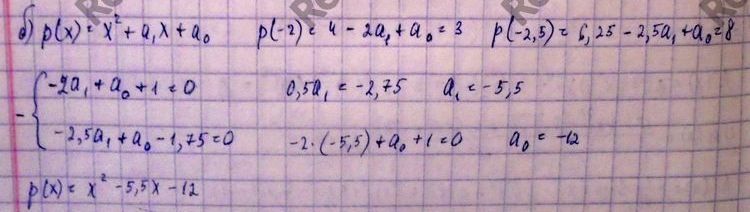 б) p(x) = x² + a₁x + a₀ p(-2) = 4 - 2a₁ + a₀ = 3 p(-2,5) = 6,25 - 2,5a₁ + a₀ = 8
-2a₁ + a₀ + 1 = 0 0,5a₁ = -2,75 a₁ = -5,5
-2,5a₁ + a₀ - 1,75 = 0 -2·(-5,5) + a₀ + 1 = 0 a₀ = -12
p(x) = x² - 5,5x - 12